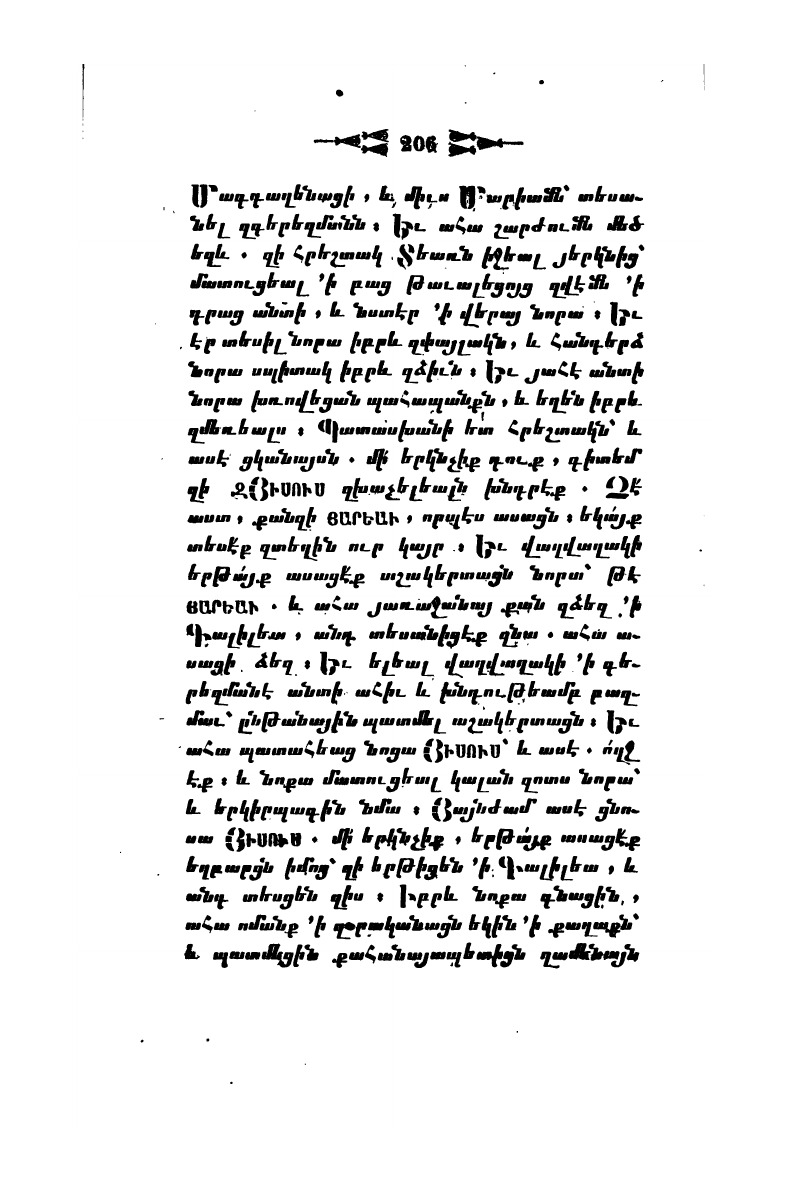 206
Մագդաղենացի , և միւս Մարիամն՝ տեսա-
նել զգերեզմանն ։ Եւ ահա շարժումն մեծ
եղև . զի Հրեշտակ Տեառն իջեալ յերկնից՝
մատուցեալ ՚ի բաց թաւալեցոյց զվէմն ՚ի
դրաց անտի , և նստէր ՚ի վերայ նորա ։ Եւ
էր տեսիլ նորա իբրև զփայլակն , և հանդերձ
նորա սպիտակ իբրև զձիւն ։ Եւ յահէ անտի
նորա խռովեցան պահապանքն , և եղեն իբրև
զմեռեալս ։ Պատասխանի ետ Հրեշտակն՝ և
ասէ ցկանայսն . մի երկնչիք դուք , գիտեմ
զի ԶՅԻՍՈՒՍ զխաչելեալն խնդրէք . Չէ
աստ , քանզի ՅԱՐԵԱՒ , որպէս ասացն ։ եկայք
տեսէք զտեղին ուր կայր ։ Եւ վաղվաղակի
երթայք ասացէք աշակերտացն նորա՝ թէ
ՅԱՐԵԱՒ . և ահա յառաջանայ քան զձեզ ՚ի
Գալիլեա , անդ տեսանիցէք զնա . ահա ա-
սացի ձեզ ։ Եւ ելեալ վաղվաղակի ՚ի գե-
րեզմանէ անտի ահիւ և խնդութեամբ բազ-
մաւ՝ ընթանային պատմել աշակերտացն ։ Եւ
ահա պատահեաց նոցա ՅԻՍՈՒՍ՝ և ասէ . ո՛ղջ
էք ։ և նոքա մատուցեալ կալան զոտս նորա՝
և երկիրպագին նմա ։ Յայնժամ ասէ ցնո-
սա ՅԻՍՈՒՍ . մի երկնչիք , երթայք ասացէք
եղբարցն իմոց՝ զի երթիցեն ՚ի Գալիլեա , և
անդ տեսցեն զիս ։ Իբրև նոքա գնացին ,
ահա ոմանք ՚ի զօրականացն եկին ՚ի քաղաքն՝
և պատմեցին քահանայապետիցն զամենայն